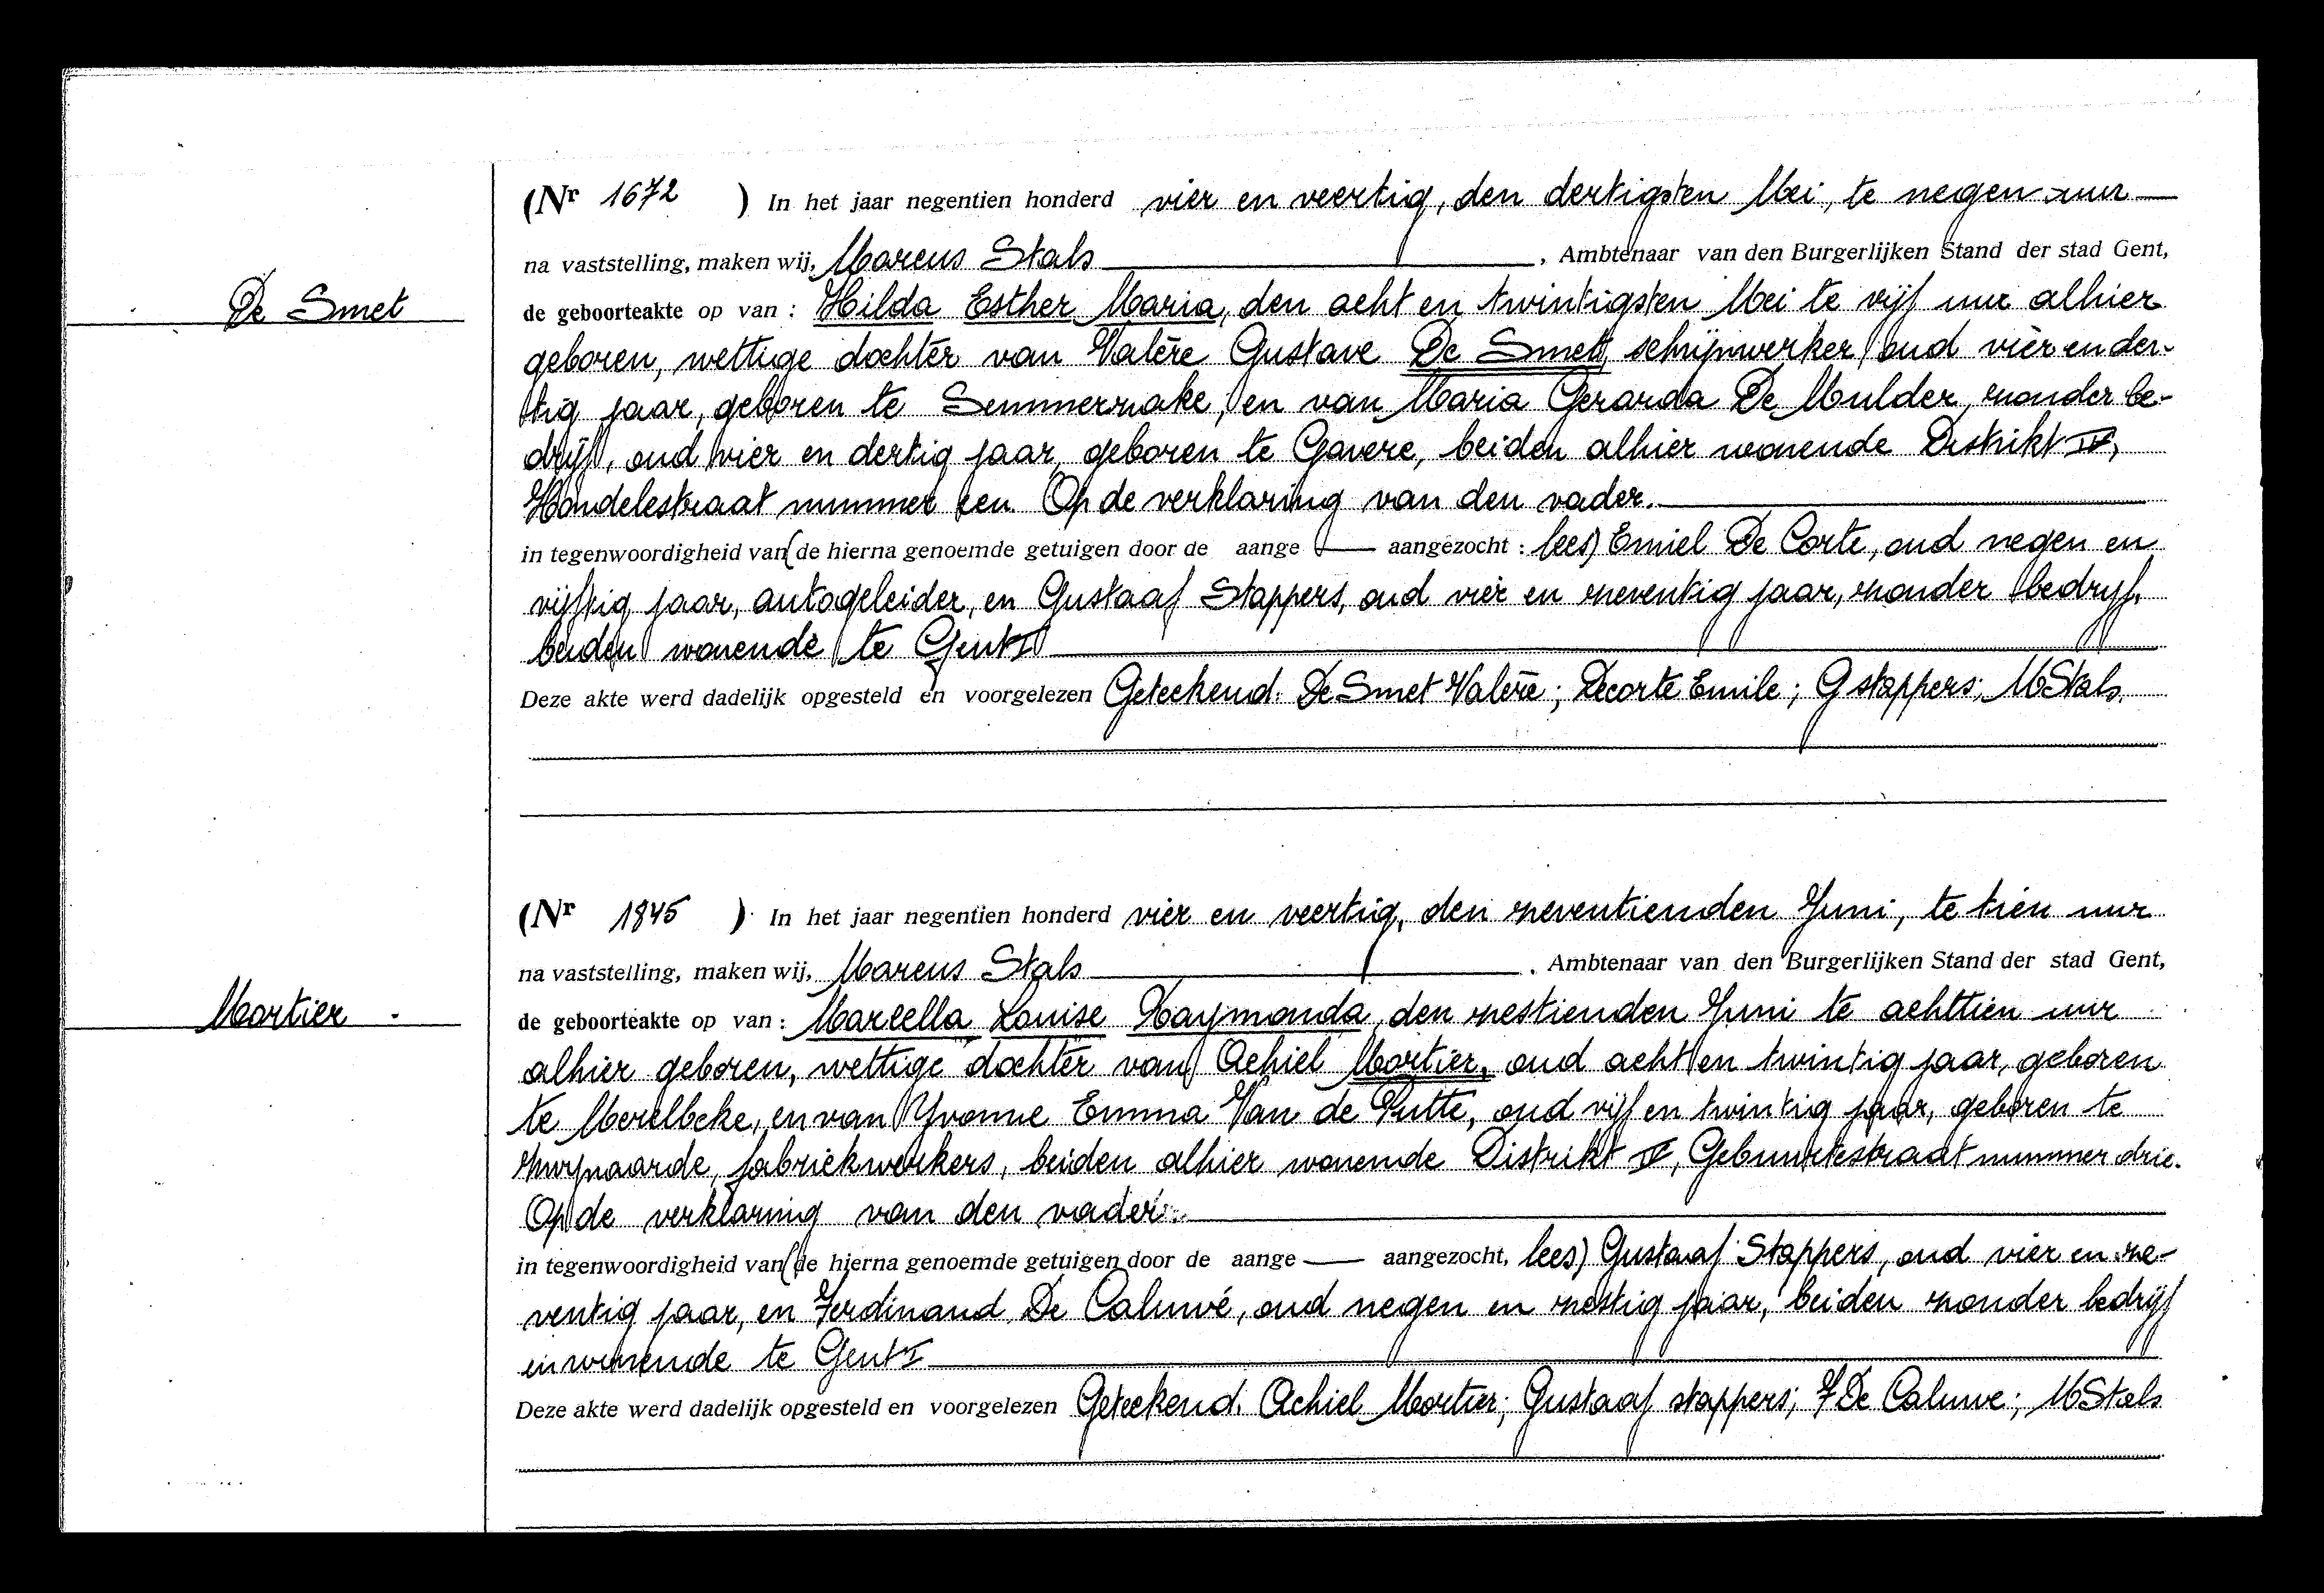 (Nr 1672 ) In het jaar negentien honderd vier en veertig, den dertigsten Mei, te negen uur
na vaststelling, maken wij, Marcus Stals, Ambtenaar van den Burgerlijken Stand der stad Gent,
De Smet
de geboorteakte op van : Hilda Esther Maria, den acht en twintigsten Mei te vijf uur alhier
geboren, wettige dochter van Valère Gustave De Smet, schrijnwerker, oud vier en der-
tig jaar, geboren te Semmerzake, en van Maria Gerarda De Mulder, zonder be-
drijf, oud vier en dertig jaar, geboren te Gavere, beiden alhier wonende Distrikt IV,
nummer een. Op de verklaring van den vader.
in tegenwoordigheid van (de hierna genoemde getuigen door de aange — aangezocht : lees) Emiel De Corte, oud negen en
vijftig jaar, autogeleider, en Gustaaf Stappers, oud vier en zeventig jaar, zonder bedrijf,
beiden wonende te Gent I
Deze akte werd dadelijk opgesteld en voorgelezen Geteekend: De Smet Valère; Decorte Emile; G stappers; M Stals.
(Nr 1845 ) In het jaar negentien honderd vier en veertig, den zeventienden Juni, te tien uur
na vaststelling, maken wij, Marcus Stals, Ambtenaar van den Burgerlijken Stand der stad Gent,
Mortier
de geboorteakte op van : Marcella Louise Raymonda, den zestienden Juni te achttien uur
alhier geboren, wettige dochter van Achiel Mortier, oud acht en twintig jaar, geboren
te Merelbeke, en van Yvonne Emma Van de Putte, oud vijf en twintig jaar, geboren te
Zwijnaarde, fabriekwerkers, beiden alhier wonende Distrikt IV, Gebuurtestraat nummer drie.
Op de verklaring van den vader.
in tegenwoordigheid van (de hierna genoemde getuigen door de aange — aangezocht, lees) Gustaaf Stappers, oud vier en ze-
ventig jaar, en Ferdinand De Caluwé, oud negen en zestig jaar, beiden zonder bedrijf
en wonende te Gent I
Deze akte werd dadelijk opgesteld en voorgelezen Geteekend: Achiel Mortier; Gustaaf stappers; F De Caluwe; M Stals